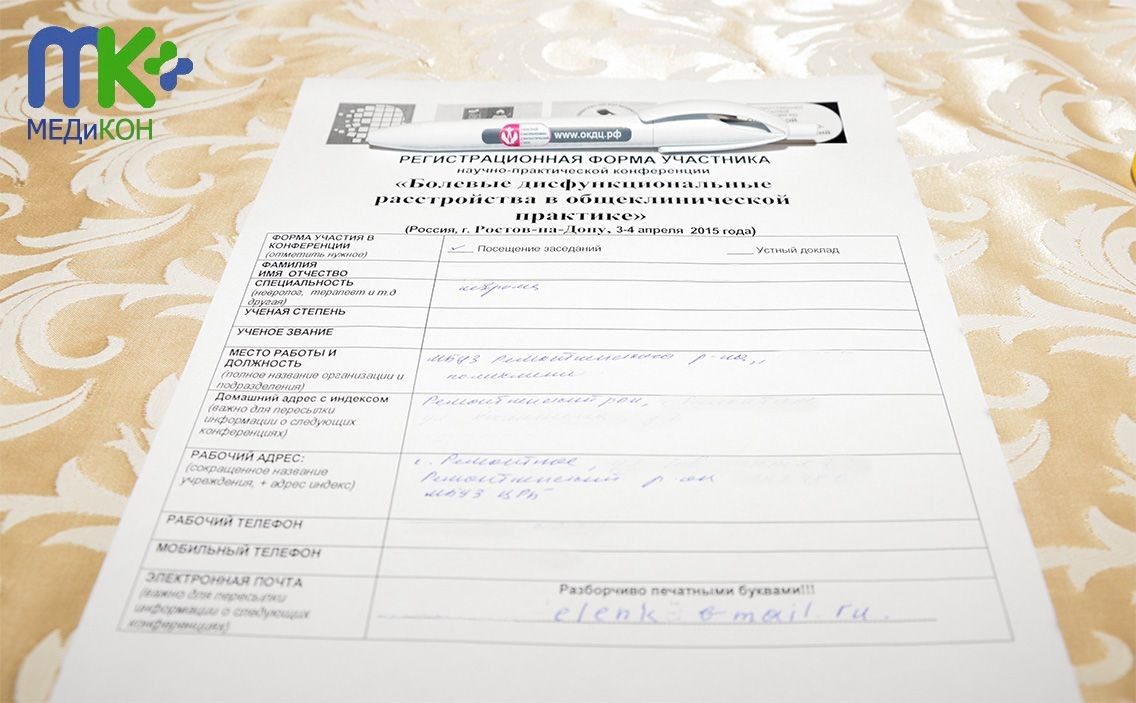 МК+
МЕДиКОН
www.окдц.рф
РЕГИСТРАЦИОННАЯ ФОРМА УЧАСТНИКА
научно-практической конференции
«Болевые дисфункциональные
расстройства в общеклинической
практике»
(Россия, г. Ростов-на-Дону, 3-4 апреля 2015 года)
ФОРМА УЧАСТИЯ В
КОНФЕРЕНЦИИ
(отметить нужное)
✓ Посещение заседаний ____ Устный доклад
ФАМИЛИЯ
ИМЯ ОТЧЕСТВО
СПЕЦИАЛЬНОСТЬ
(невролог, терапевт и т.д
другая)
УЧЕНАЯ СТЕПЕНЬ
УЧЕНОЕ ЗВАНИЕ
МЕСТО РАБОТЫ И
ДОЛЖНОСТЬ
(полное название организации и
подразделения)
МБУЗ Ремонтненского р-на,
Домашний адрес с индексом
(важно для пересылки
информации о следующих
конференциях)
Ремонтненский рон,
РАБОЧИЙ АДРЕС:
(сокращенное название
учреждения, + адрес индекс)
с. Ремонтное,
Ремонтненский р-он
МБУЗ ЦРБ
РАБОЧИЙ ТЕЛЕФОН
МОБИЛЬНЫЙ ТЕЛЕФОН
ЭЛЕКТРОННАЯ ПОЧТА
(важно для пересылки
информации о следующих
конференциях)
Разборчиво печатными буквами!!!
elenk mail.ru.